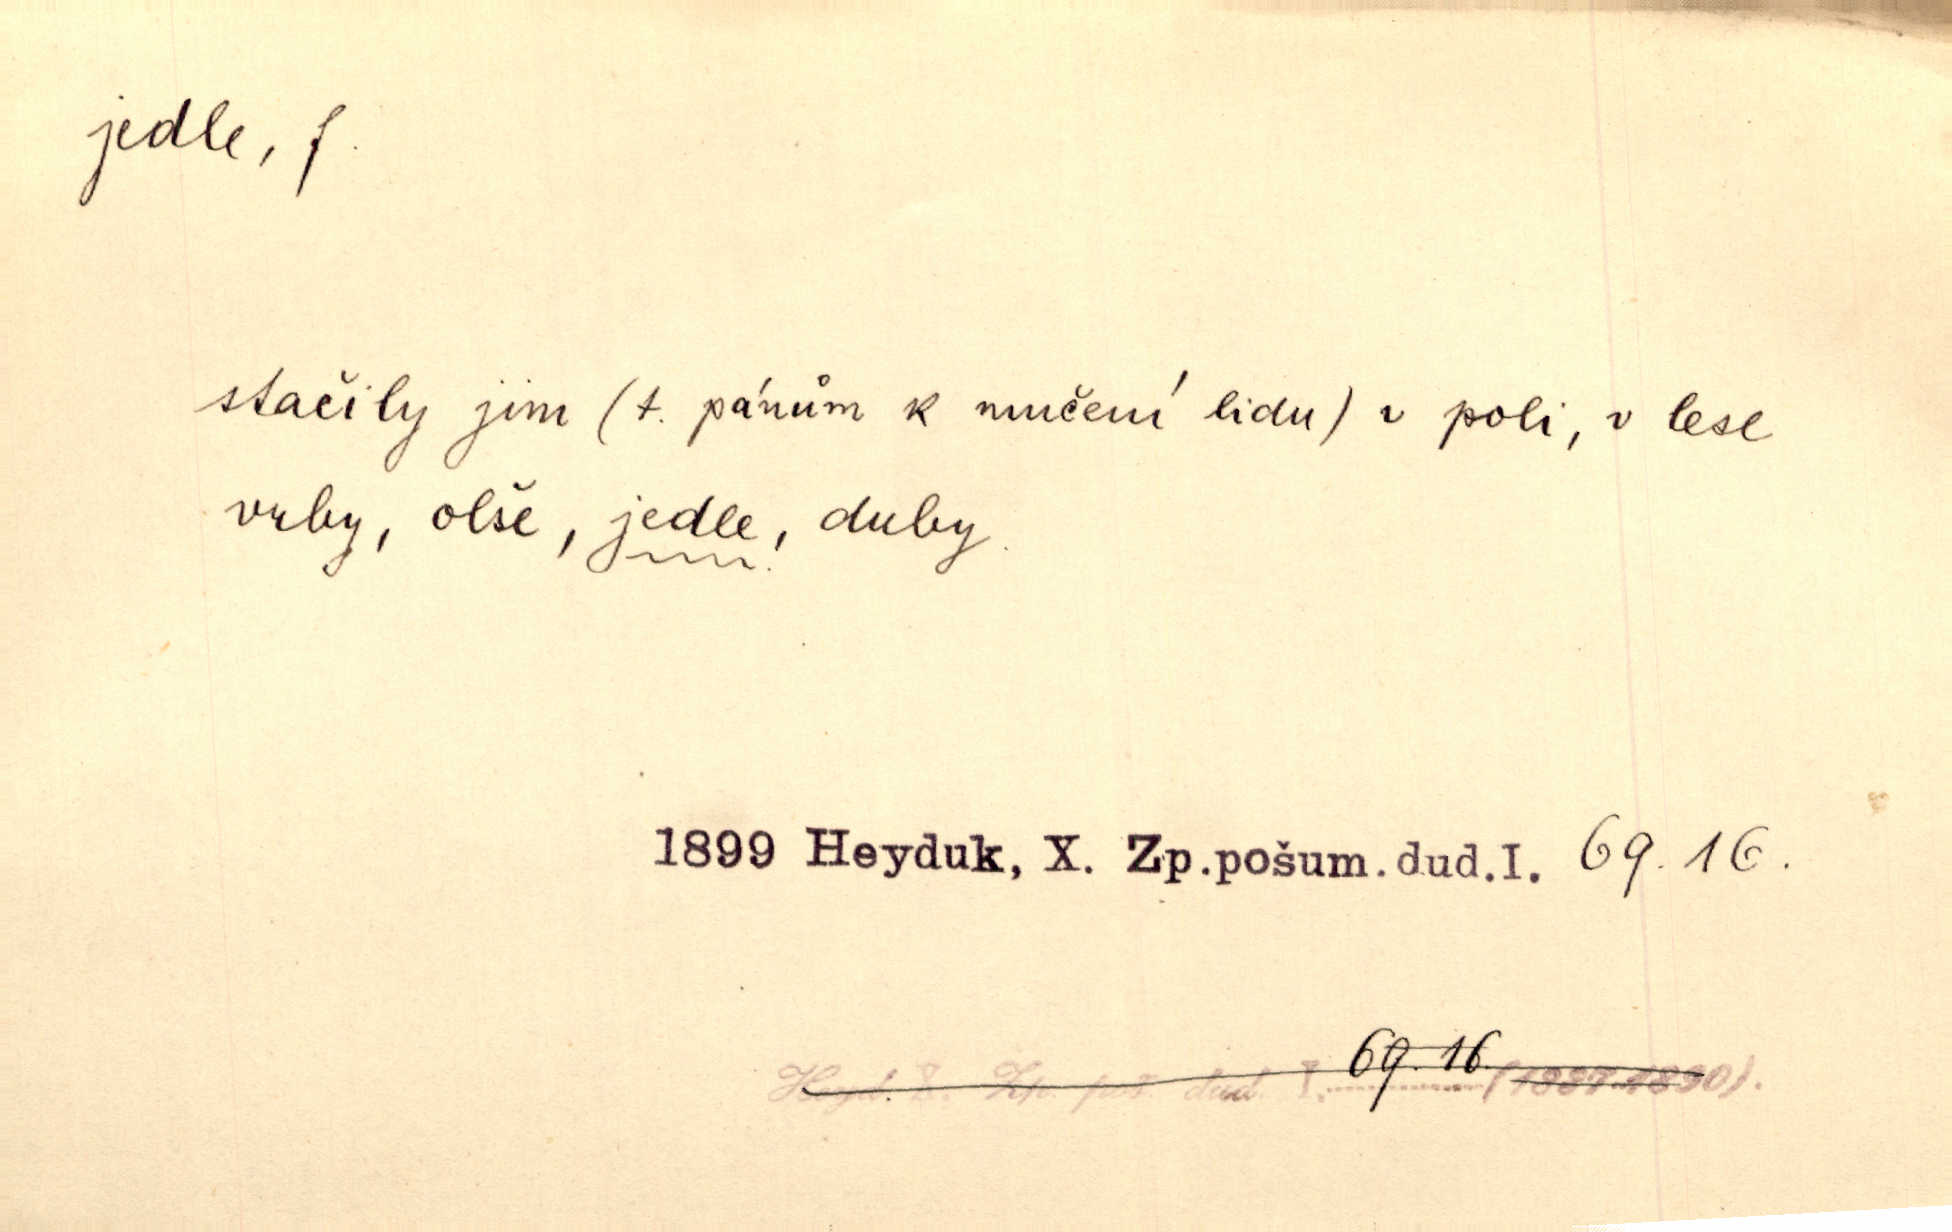 jedle, f.
stačily jim (t. pánům k mučení lidu) v poli, v lese
vrby, olše, jedle, duby.
1899 Heyduk, X. Zp.pošum.dud.I. 69. 16.
Heyd. X. Zp. poš. dud. I. 69. 16 (1887-1890).